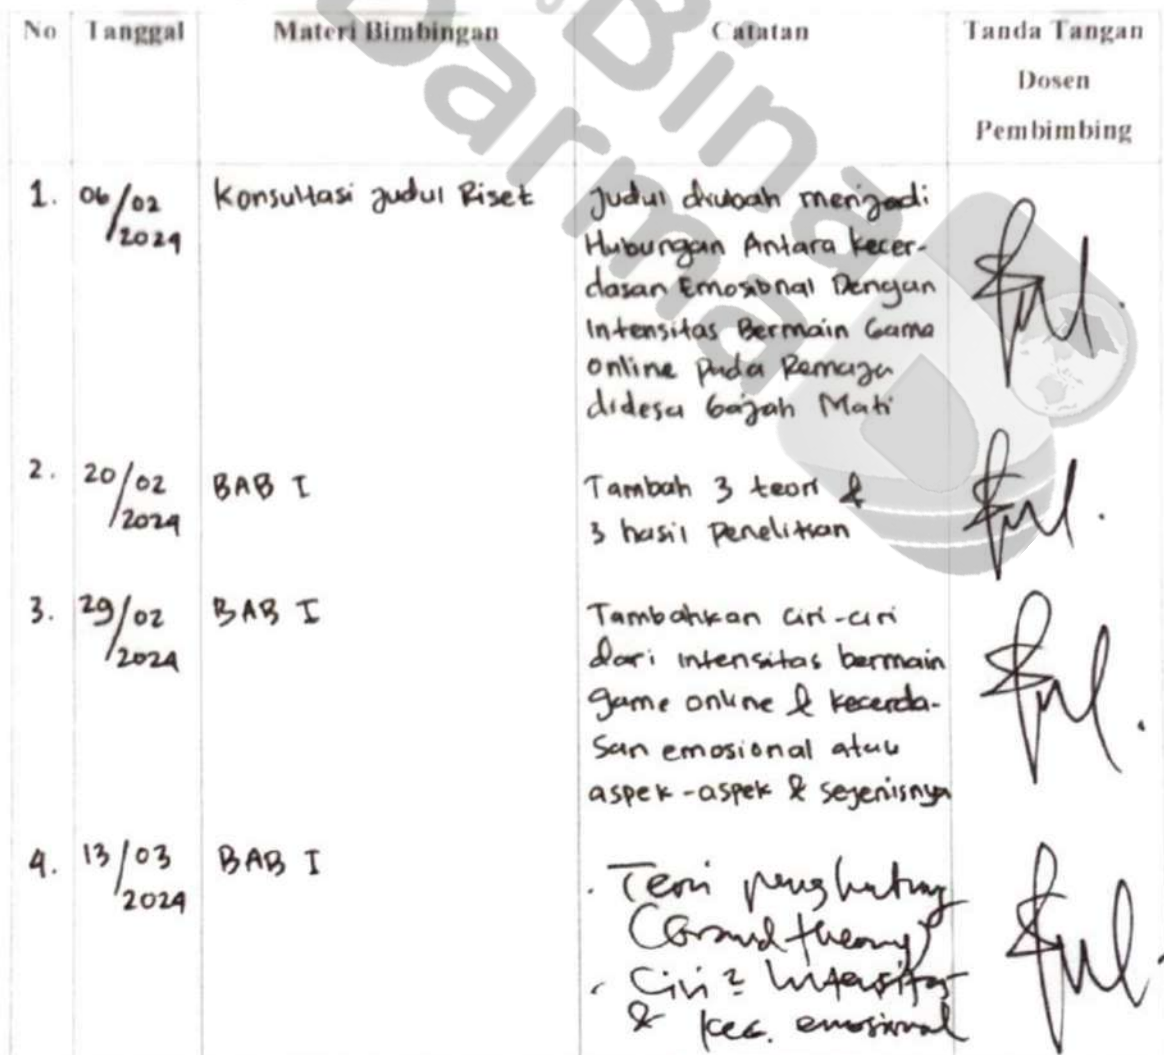 Bina
Darma
No Tanggal Materi Bimbingan Catatan Tanda Tangan
Dosen
Pembimbing
1. 06/02 Konsultasi Judul Riset Judul dirubah menjadi
/2024 Hubungan Antara kecer-
dasan Emosional Dengan
Intensitas Bermain Game
online pada Remaja
didesa Gajah Mati
2. 20/02 BAB I Tambah 3 teori &
/2024 3 hasil Penelitian
3. 29/02 BAB I Tambahkan ciri-ciri
/2024 dari intensitas bermain
game online & kecerda-
san emosional atau
aspek-aspek & sejenisnya
4. 13/03 BAB I . Teori penghubung
/2024 (Grand theory)
. Ciri2 Intensitas
& kec. emosional